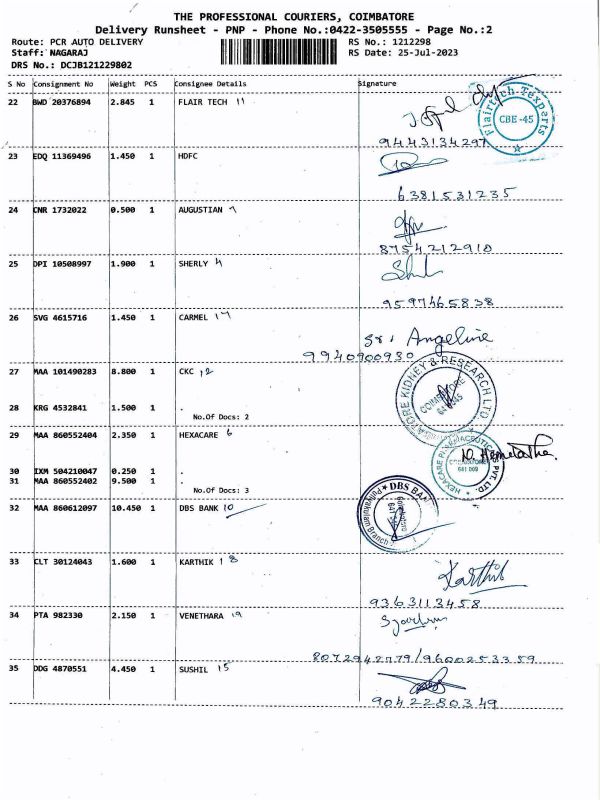 THE PROFESSIONAL COURIERS, COIMBATORE
Delivery Runsheet - PNP - Phone No.:0422-3505555 - Page No.:2
Route: PCR AUTO DELIVERY RS No.: 1212298
Staff: NAGARAJ RS Date: 25-Jul-2023
DRS No.: DCJB121229802
S No Consignment No Weight PCS Consignee Details Signature
22 BWD 20376894 2.845 1 FLAIR TECH 11
Flairtech Texparts CBE -45
9443134297
23 EDQ 11369496 1.450 1 HDFC
6381531235
24 CNR 1732022 0.500 1 AUGUSTIAN
8754212910
25 DPI 10508997 1.900 1 SHERLY 4
9597465838
26 SVG 4615716 1.450 1 CARMEL 17
Sr. Angeline
9940900930
27 MAA 101490283 8.800 1 CKC 12
KIDNEY & RESEARCH
COIMBATORE
28 KRG 4532841 1.500 1
No.Of Docs: 2
29 MAA 860552404 2.350 1 HEXACARE 6
HEXACARE PHARMACEUTICALS PVT. LTD.
COIMBATORE
641 009
N. Hemalatha
30 IXM 504210047 0.250 1 .
31 MAA 860552402 9.500 1 .
No.Of Docs: 3
32 MAA 860612097 10.450 1 DBS BANK 10
DBS BANK
Branch
33 CLT 30124043 1.600 1 KARTHIK 1 8
Karthik
9363113458
34 PTA 982330 2.150 1 VENETHARA 19
8072942779/9600253359
35 DDG 4870551 4.450 1 SUSHIL 15
9042280349